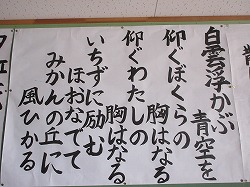 白雲浮かぶ
青空を
仰ぐぼくらの
胸はなる
仰ぐわたしの
胸はなる
いちずに励む
ほおなでて
みかんの丘に
風ひかる